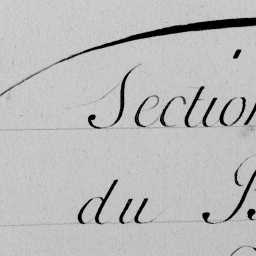 Section
du B